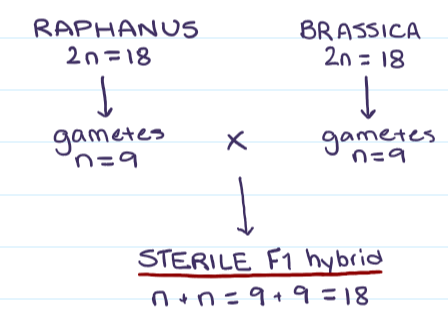 RAPHANUS BRASSICA
2n=18 2n=18
gametes × gametes
n=9 n=9
STERILE F1 hybrid
n+n=9+9=18